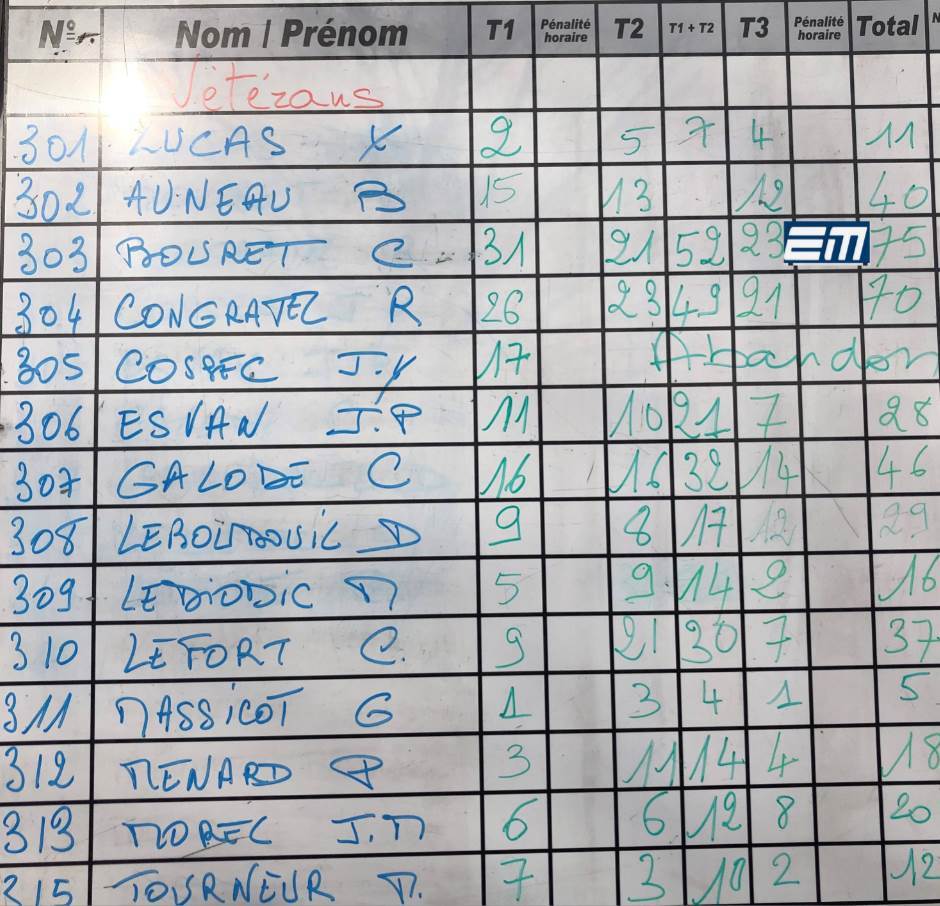 N° Nom / Prénom T1 Pénalité horaire T2 T1 + T2 T3 Pénalité horaire Total
Vétérans
301 LUCAS X 2 5 7 4 11
302 AUNEAU B 15 13 12 40
303 BOURET C 31 21 52 23 EM 75
304 CONGRATEL R 26 23 49 21 70
305 COSPEC J.Y 17 Abandon
306 ESVAN J.P 11 10 21 7 28
307 GALODE C 16 16 32 14 46
308 D 9 8 17 12 29
309 LE DIODIC M 5 9 14 2 16
310 LE FORT C. 9 21 30 7 37
311 MASSICOT G 1 3 4 1 5
312 MENARD P 3 11 14 4 18
313 MOREL J.M 6 6 12 8 20
315 TOURNEUR M. 7 3 10 2 12